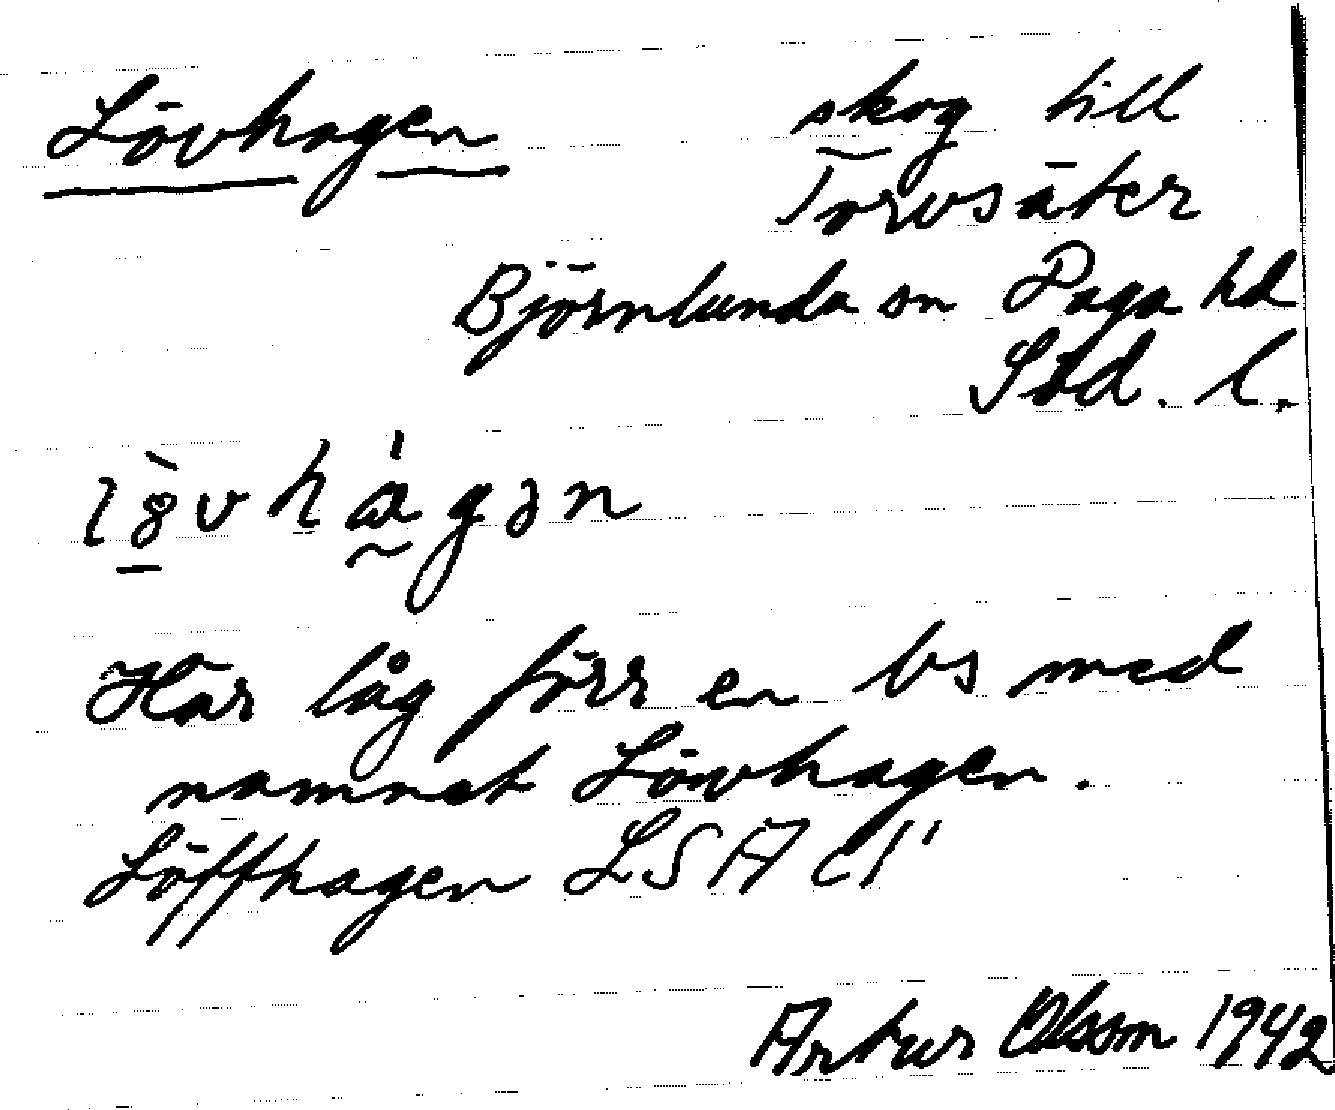 Lövhagen skog till
Torvsäter
Björnlunda sn Daga hd
Söd. l.
Här låg förr en bs med
namnet Lövhagen.
Löffhagen LSA
Artur Olsson 1942